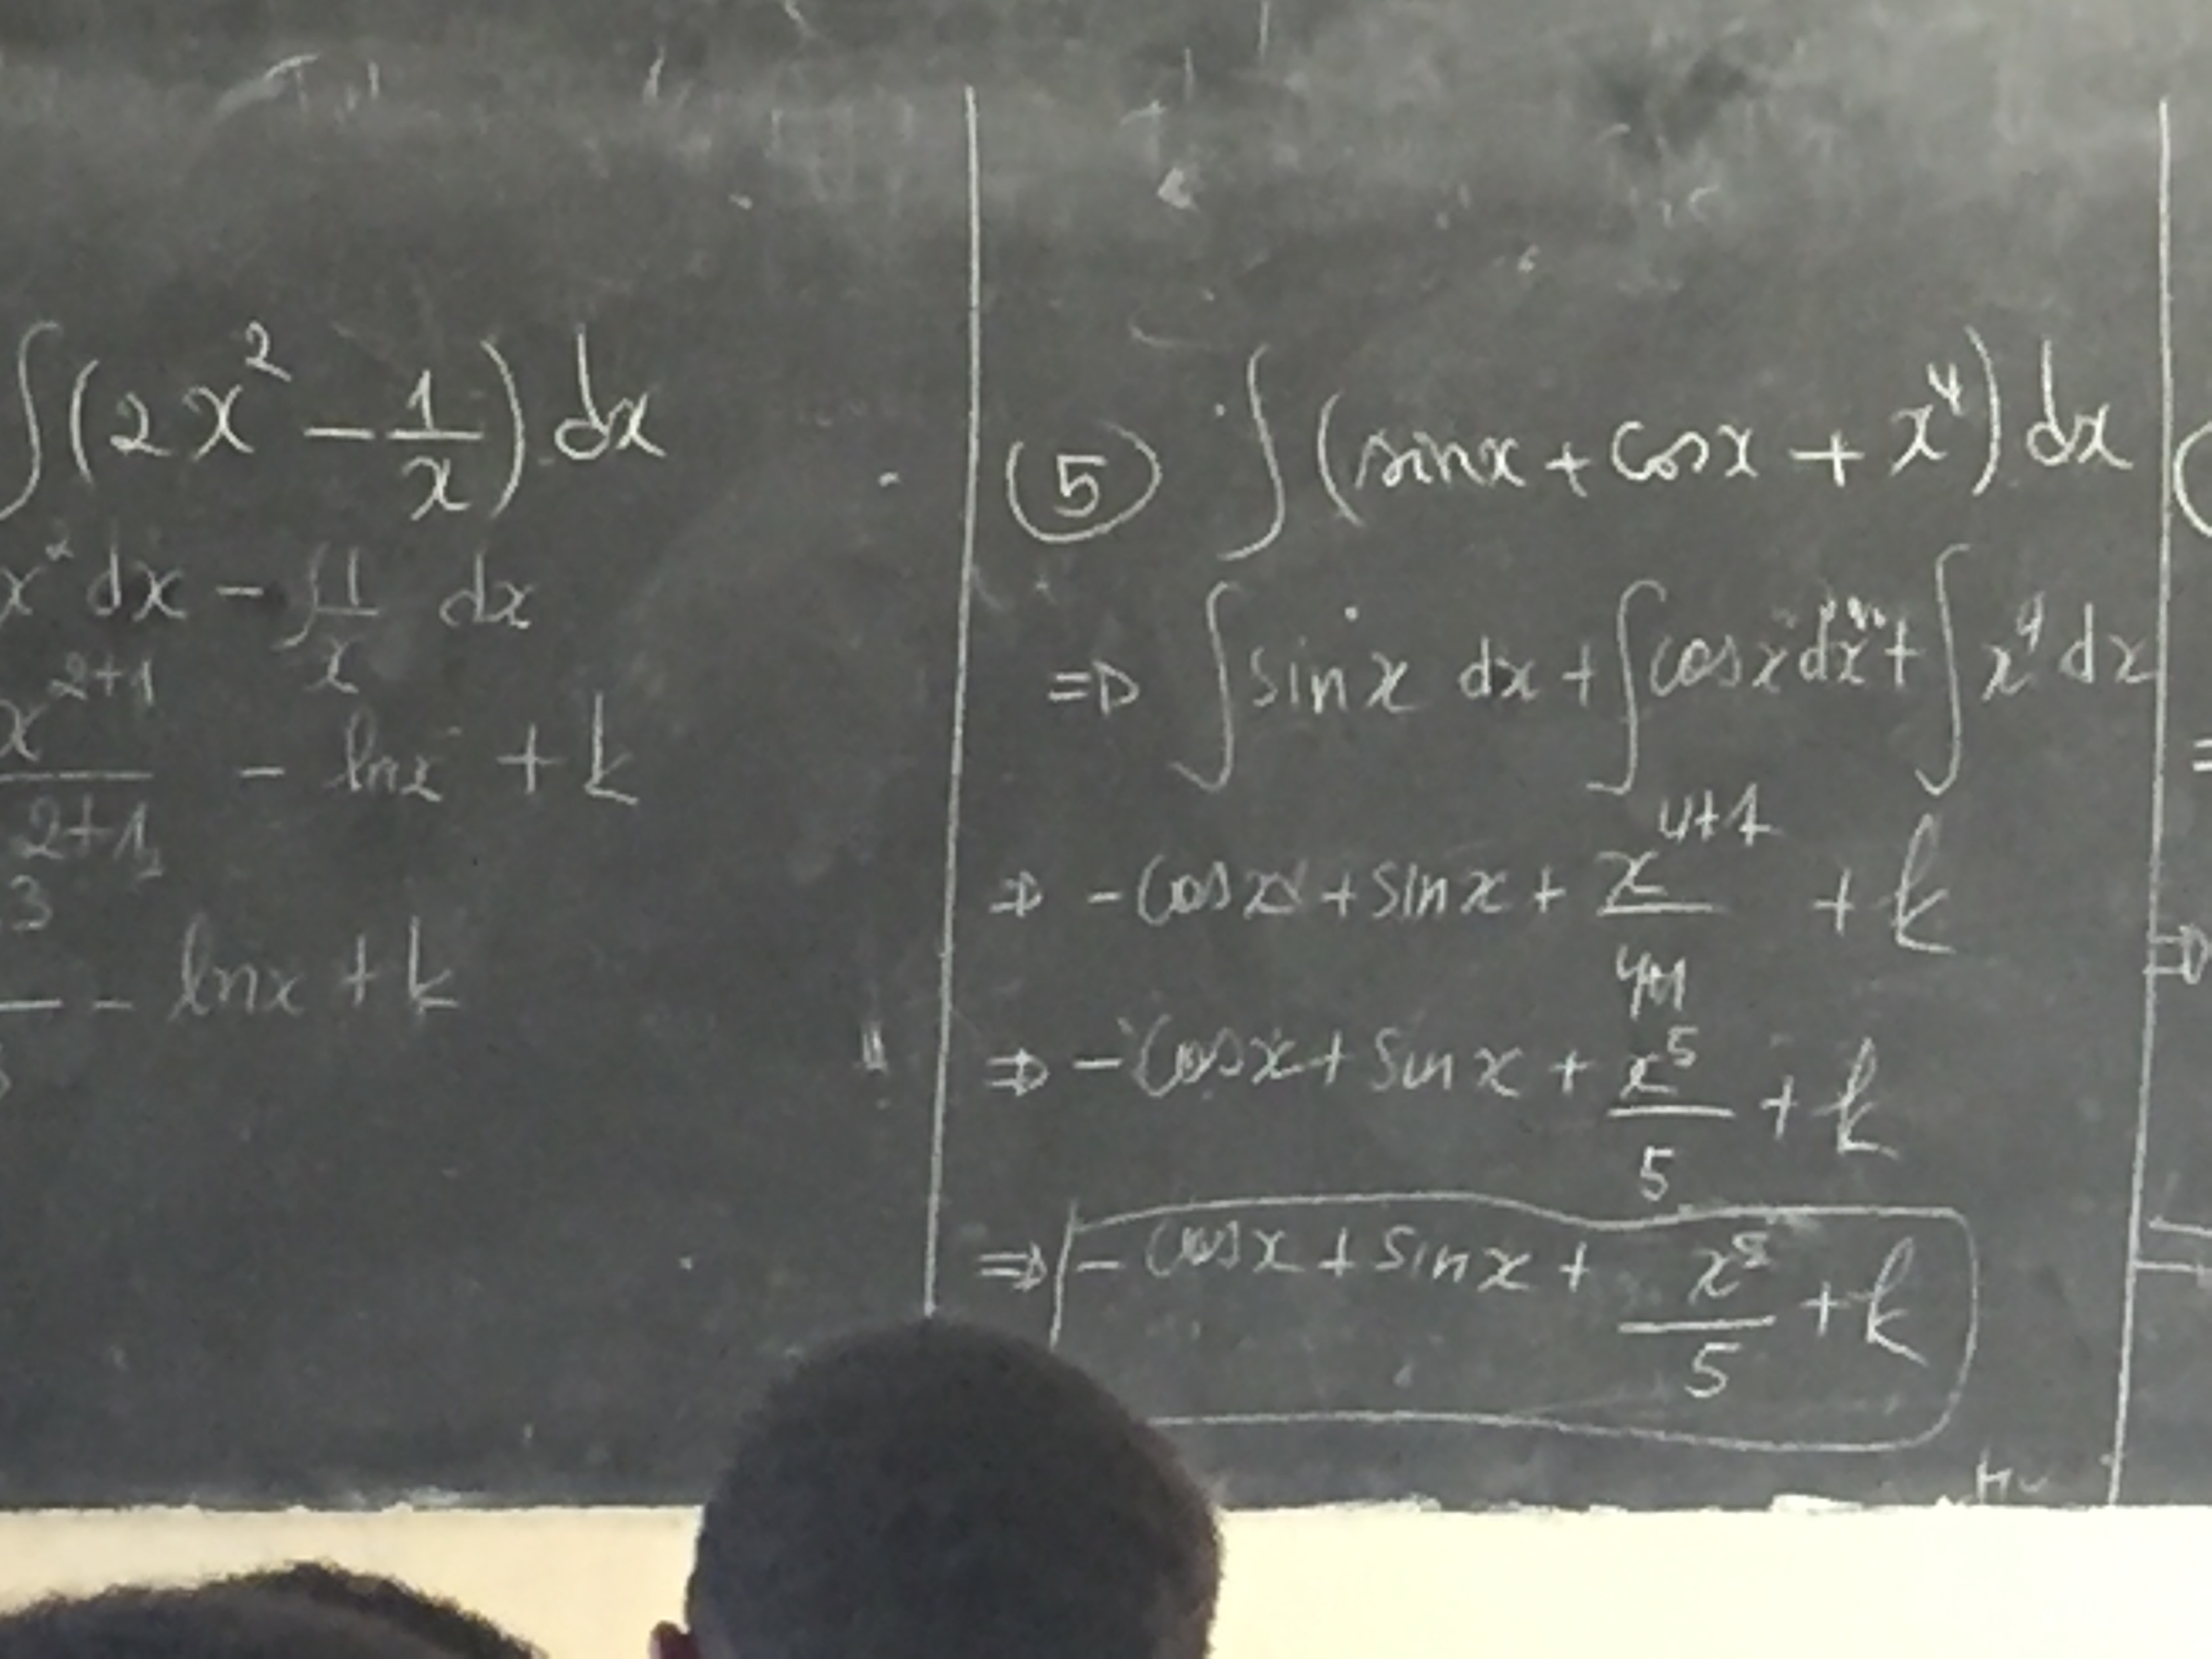 ∫(2x² - 1/x) dx
x² dx - ∫1/x dx
x^(2+1)/(2+1) - lnx + k
3
- lnx + k
⑤ ∫(sinx + cosx + x⁴) dx
⇒ ∫sinx dx + ∫cosx dx + ∫x⁴ dx
⇒ -cosx + sinx + x^(4+1)/(4+1) + k
⇒ -cosx + sinx + x⁵/5 + k
⇒ -cosx + sinx + x⁵/5 + k